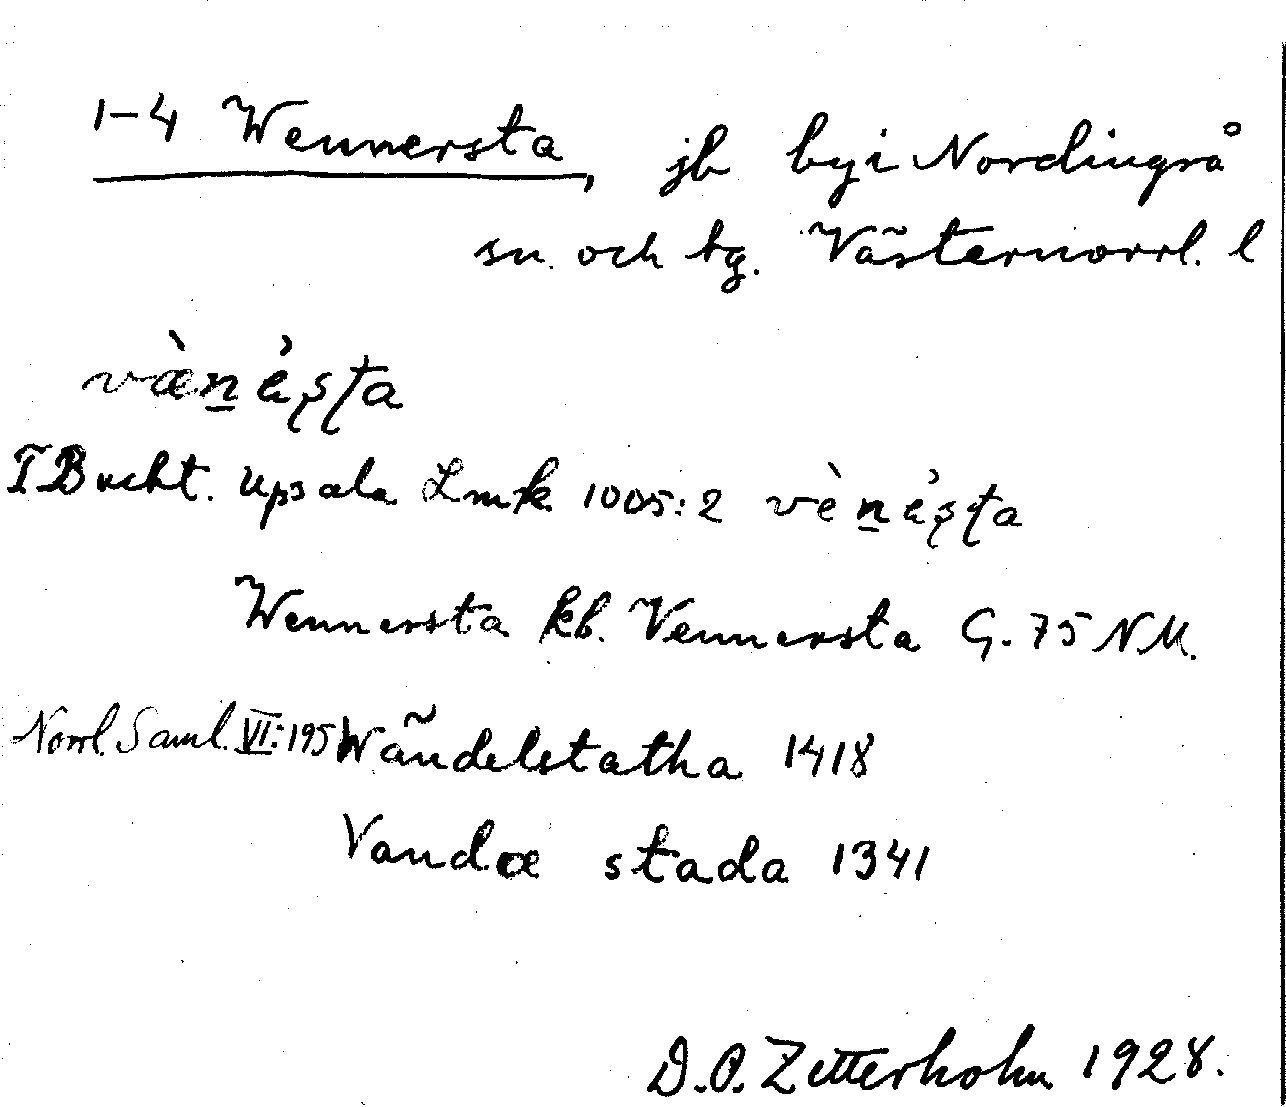 1-4 Wennersta, jb by i Nordingrå
sn. och tg. Västernorrl. l
væ̀n̲ég̨ʂʈa
T Bucht. Upsala Lmk 1005:2 vèn̲éʂʈa
Wennersta kb. Vennersta G. 75 NM.
Norrl. Saml. VI:195 Wändelstatha 1418
Vandæ stada 1341
D.O. Zetterholm 1928.